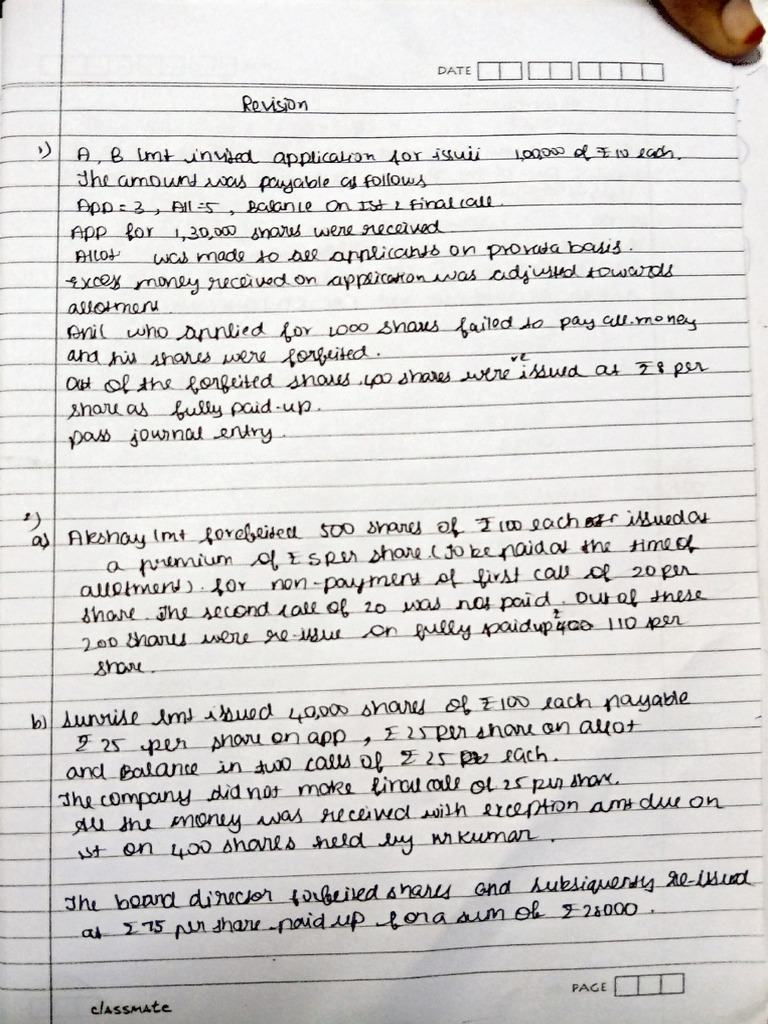 DATE
Revision
1) A, B lmt invited application for issuii 1,00,000 of ₹10 each.
The amount was payable as follows
App = 3, All = 5, Balance on Ist & final call.
App for 1,30,000 shares were received
Allot was made to all applicants on prorata basis.
exces money received on application was adjusted towards
allotment.
Anil who applied for 1000 shares failed to pay all money
and his shares were forfeited.
Out of the forfeited shares 400 shares were re issued at ₹8 per
share as fully paid-up.
pass journal entry.
2)
a) Akshay lmt forefeited 500 shares of ₹100 each issued at
a premium of ₹5 per share (to be paid at the time of
allotment). for non-payment of first call of 20 per
share. The second call of 20 was not paid. out of these
200 shares were re-issue on fully paid up 110 per
share.
b) Sunrise lmt issued 40,000 shares of ₹100 each payable
₹25 per share on app, ₹25 per share on allot
and Balance in two calls of ₹25 each.
The company did not make final call of 25 per share.
All the money was received with exception amt due on
1st on 400 shares held by Mr Kumar.
The board director forfeited shares and subsiquently re-issued
as ₹75 per share paid up for a sum of ₹28000.
PAGE
classmate